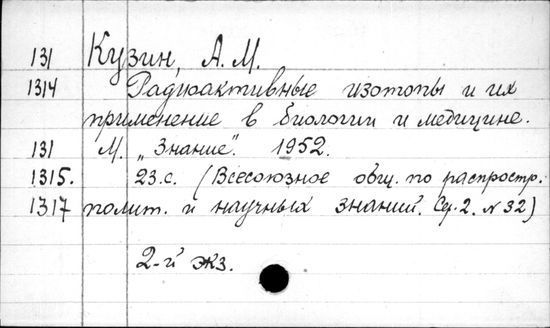 131 Кузин, А. М.
1314 Радиоактивные изотопы и их
применение в биологии и медицине.
131 М. „Знание". 1952.
1315. 23.с. (Всесоюзное общ. по распростр.
1317 полит. и научных знаний. Сер. 2. № 32)
2-й экз.